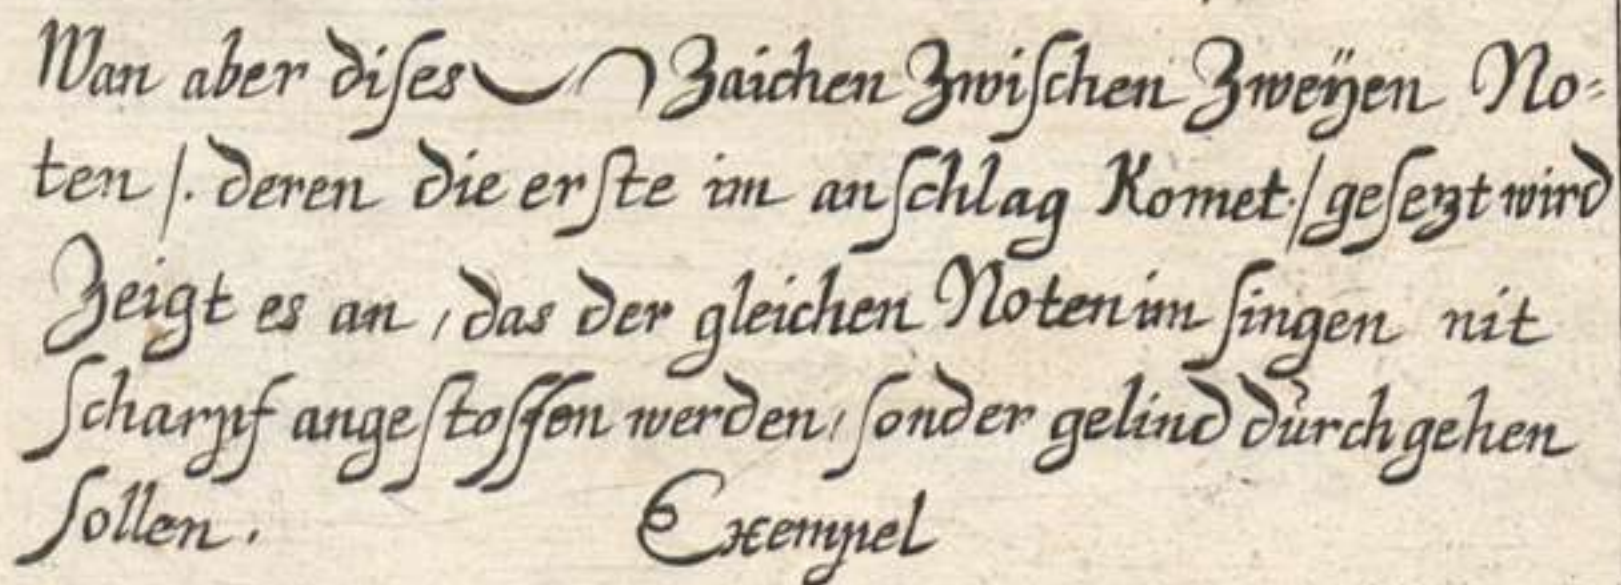 Wan aber diſes ‿ ⁀ Zaichen Zwiſchen Zweÿen No⸗
ten /. deren die erſte im anſchlag Komet ./ geſezt wird
Zeigt es an, das der gleichen Noten im ſingen nit
ſcharpf angeſtoſſen werden, ſonder gelind důrchgehen
ſollen. Exempel